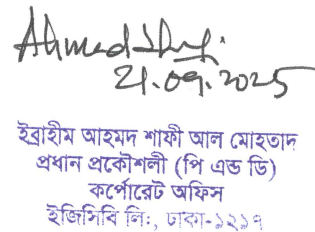 Ahmad Shafi
21.09.2025
ইব্রাহীম আহমদ শাফী আল মোহতাদ
প্রধান প্রকৌশলী (পি এন্ড ডি)
কর্পোরেট অফিস
ইজিসিবি লি:, ঢাকা-১২১৭